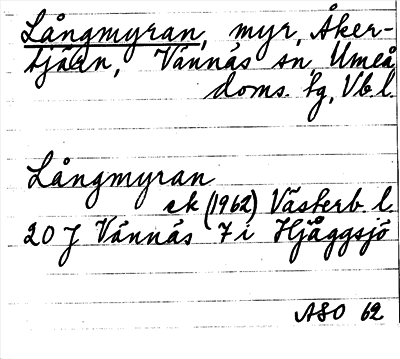 Långmyran, myr, Åker-
tjärn, Vännäs sn Umeå
doms. tg, Vb. l.
Långmyran
ek (1962) Västerb. l.
20 J Vännäs 7 i Hjåggsjö
ASO 62